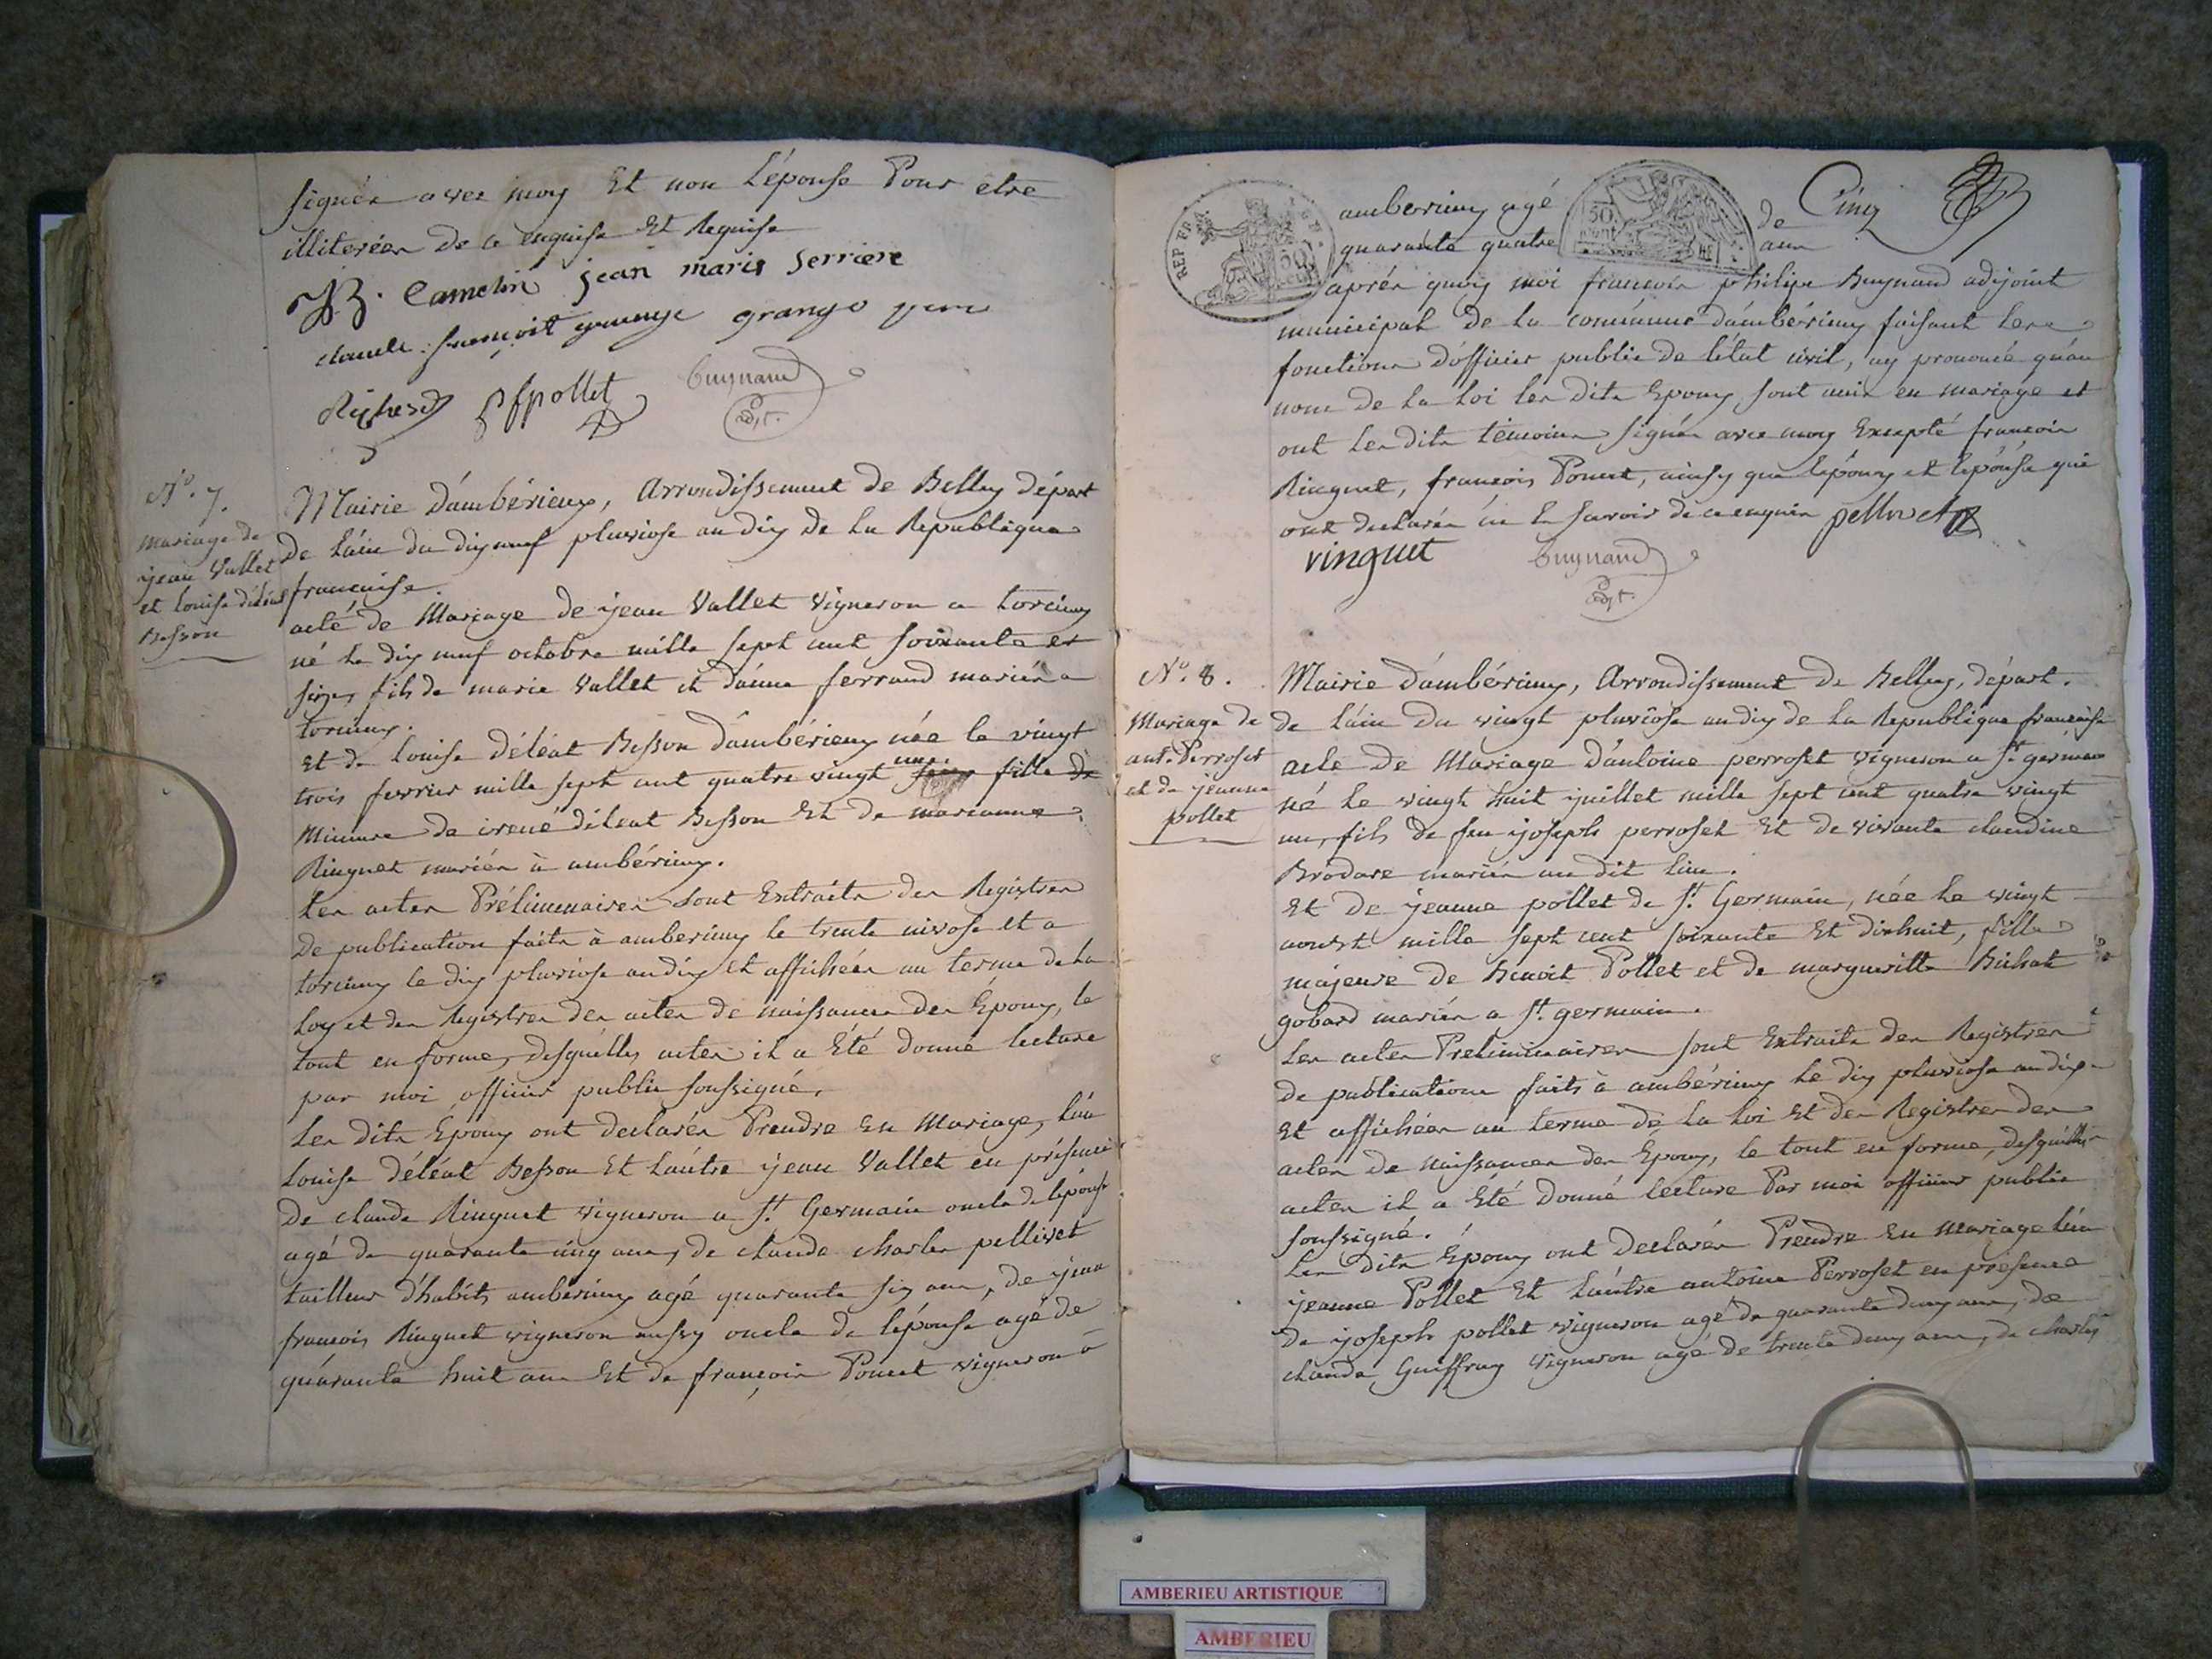 signés avec moy Et non L'épouse Pour etre
illiterées de ce enquise Et Requise
JB. Camelin jean marie serriere
claude françoit grange grange pere
Richerd pollet buynand
adjt.
N°. 7.
mariage de
jean Vallet
et louise délèat
Besson
Mairie d'ambérieux, Arrondissement de Belley départ
de l'áin du dix neuf pluviose an dix de La Republique
francaise.
acté de Mariage de jean Vallet Vigneron a torcieux
né Le dix neuf octobre mille sept cent soixante et
seize, fils de marie Vallet et d'anne ferrand mariés a
torcieux.
Et de Louise déléat Besson d'ambérieux née le vingt
trois fevrier mille sept cent quatre vingt un fille
Mineure de irené déléat Besson Et de marianne
Ringuet mariés à ambérieux.
Les actes Préliminaires sont Extraits des Registres
de publication faits à amberieux le trente nivose et a
torcieux le dix pluviose an dix et affichées au terme de La
Loy et des Registres des actes de naissances des Époux, le
tout en forme, desquelles actes il a Été donné lecture
par moi officier public soussigné.
Les dits Époux ont declarés Prendre En Mariage, L'un
Louise déléat Besson Et L'autre jean Vallet en présence
de claude Ringuet vigneron a St. Germain oncle de l'épouse
agé de quarante cinq ans, de claude charles pellivet
tailleur d'habits ambérieux agé quarante six ans, de jean
francois Ringuet vigneron aussy oncle de l'épouse agé de
quarante huit ans Et de françois Poncet vigneron a
REP. FRA.
50
ambérieux agé de Cinq
quarante quatre ans
après quoy moi francois philipe Buynand adjoint
municipal de La commune d'ambérieux faisant Les
fonctions d'officier public de l'état civil, ay prononcé qu'au
nom de La Loi les dits Epoux sont unis en mariage et
ont Les dits témoins signés avec moy Excepté francois
Ringuet, francois Poncet, ainsy que l'époux et l'épouse qui
ont declarés ne le savoir de ce enquis pellivet
ringuet buynand
adjt.
N°. 8.
Mariage de
ant. Perroset
et de jeanne
pollet
Mairie d'ambérieux, Arrondissement de Belley, départ.
de L'áin du vingt pluviose an dix de La Republique francaise
acte de Mariage d'antoine perroset vigneron a St. germain
né Le vingt huit juillet mille sept cent quatre vingt
un, fils de feu joseph perroset Et de vivante claudine
Brodare mariés au dit lieu.
Et de jeanne pollet de St. Germain, née Le vingt
aoust mille sept cent soixante Et dixhuit, fille
majeure de Benoit Pollet et de margueritte Bichat
gobard mariés a St. germain.
Les actes Preliminaires sont Extraits des Registres
de publications faits à ambérieux Le dix pluviose an dix
Et affichées au terme de La Loi Et des Registres des
actes de naissances des Epoux, le tout en forme, desquelles
actes il a Été donné lecture Par moi officier public
soussigné.
Les dits Époux ont declarés Prendre En mariage L'un
jeanne Pollet Et L'autre antoine Perroset en présence
de joseph pollet vigneron agé de quarante deux ans, de
claude Guiffray vigneron agé de trente deux ans, de charles
AMBERIEU ARTISTIQUE
AMBERIEU